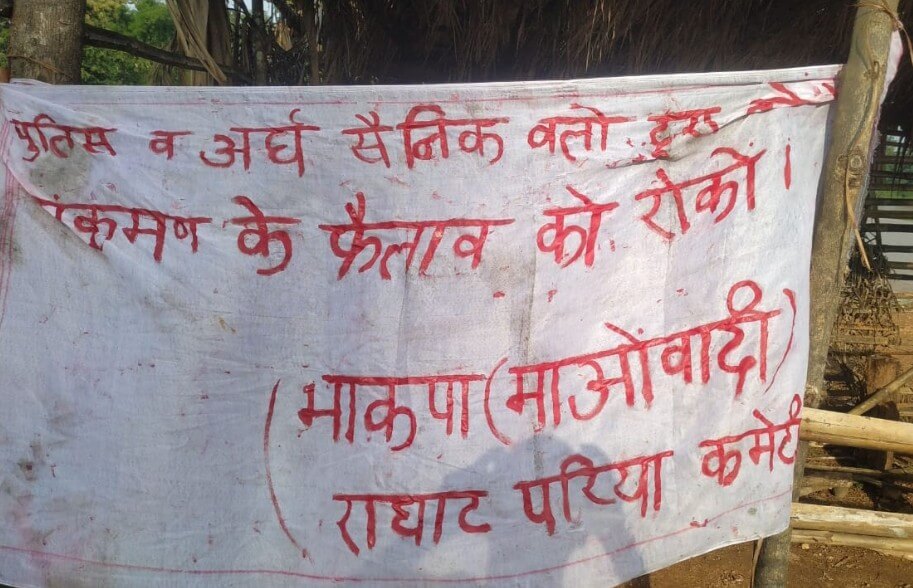 पुलिस व अर्घ सैनिक वलो द्वारा
संक्रमण के फैलाव को रोको।
(भाकपा (माओंवादी)
राघाट परिया कमेटी